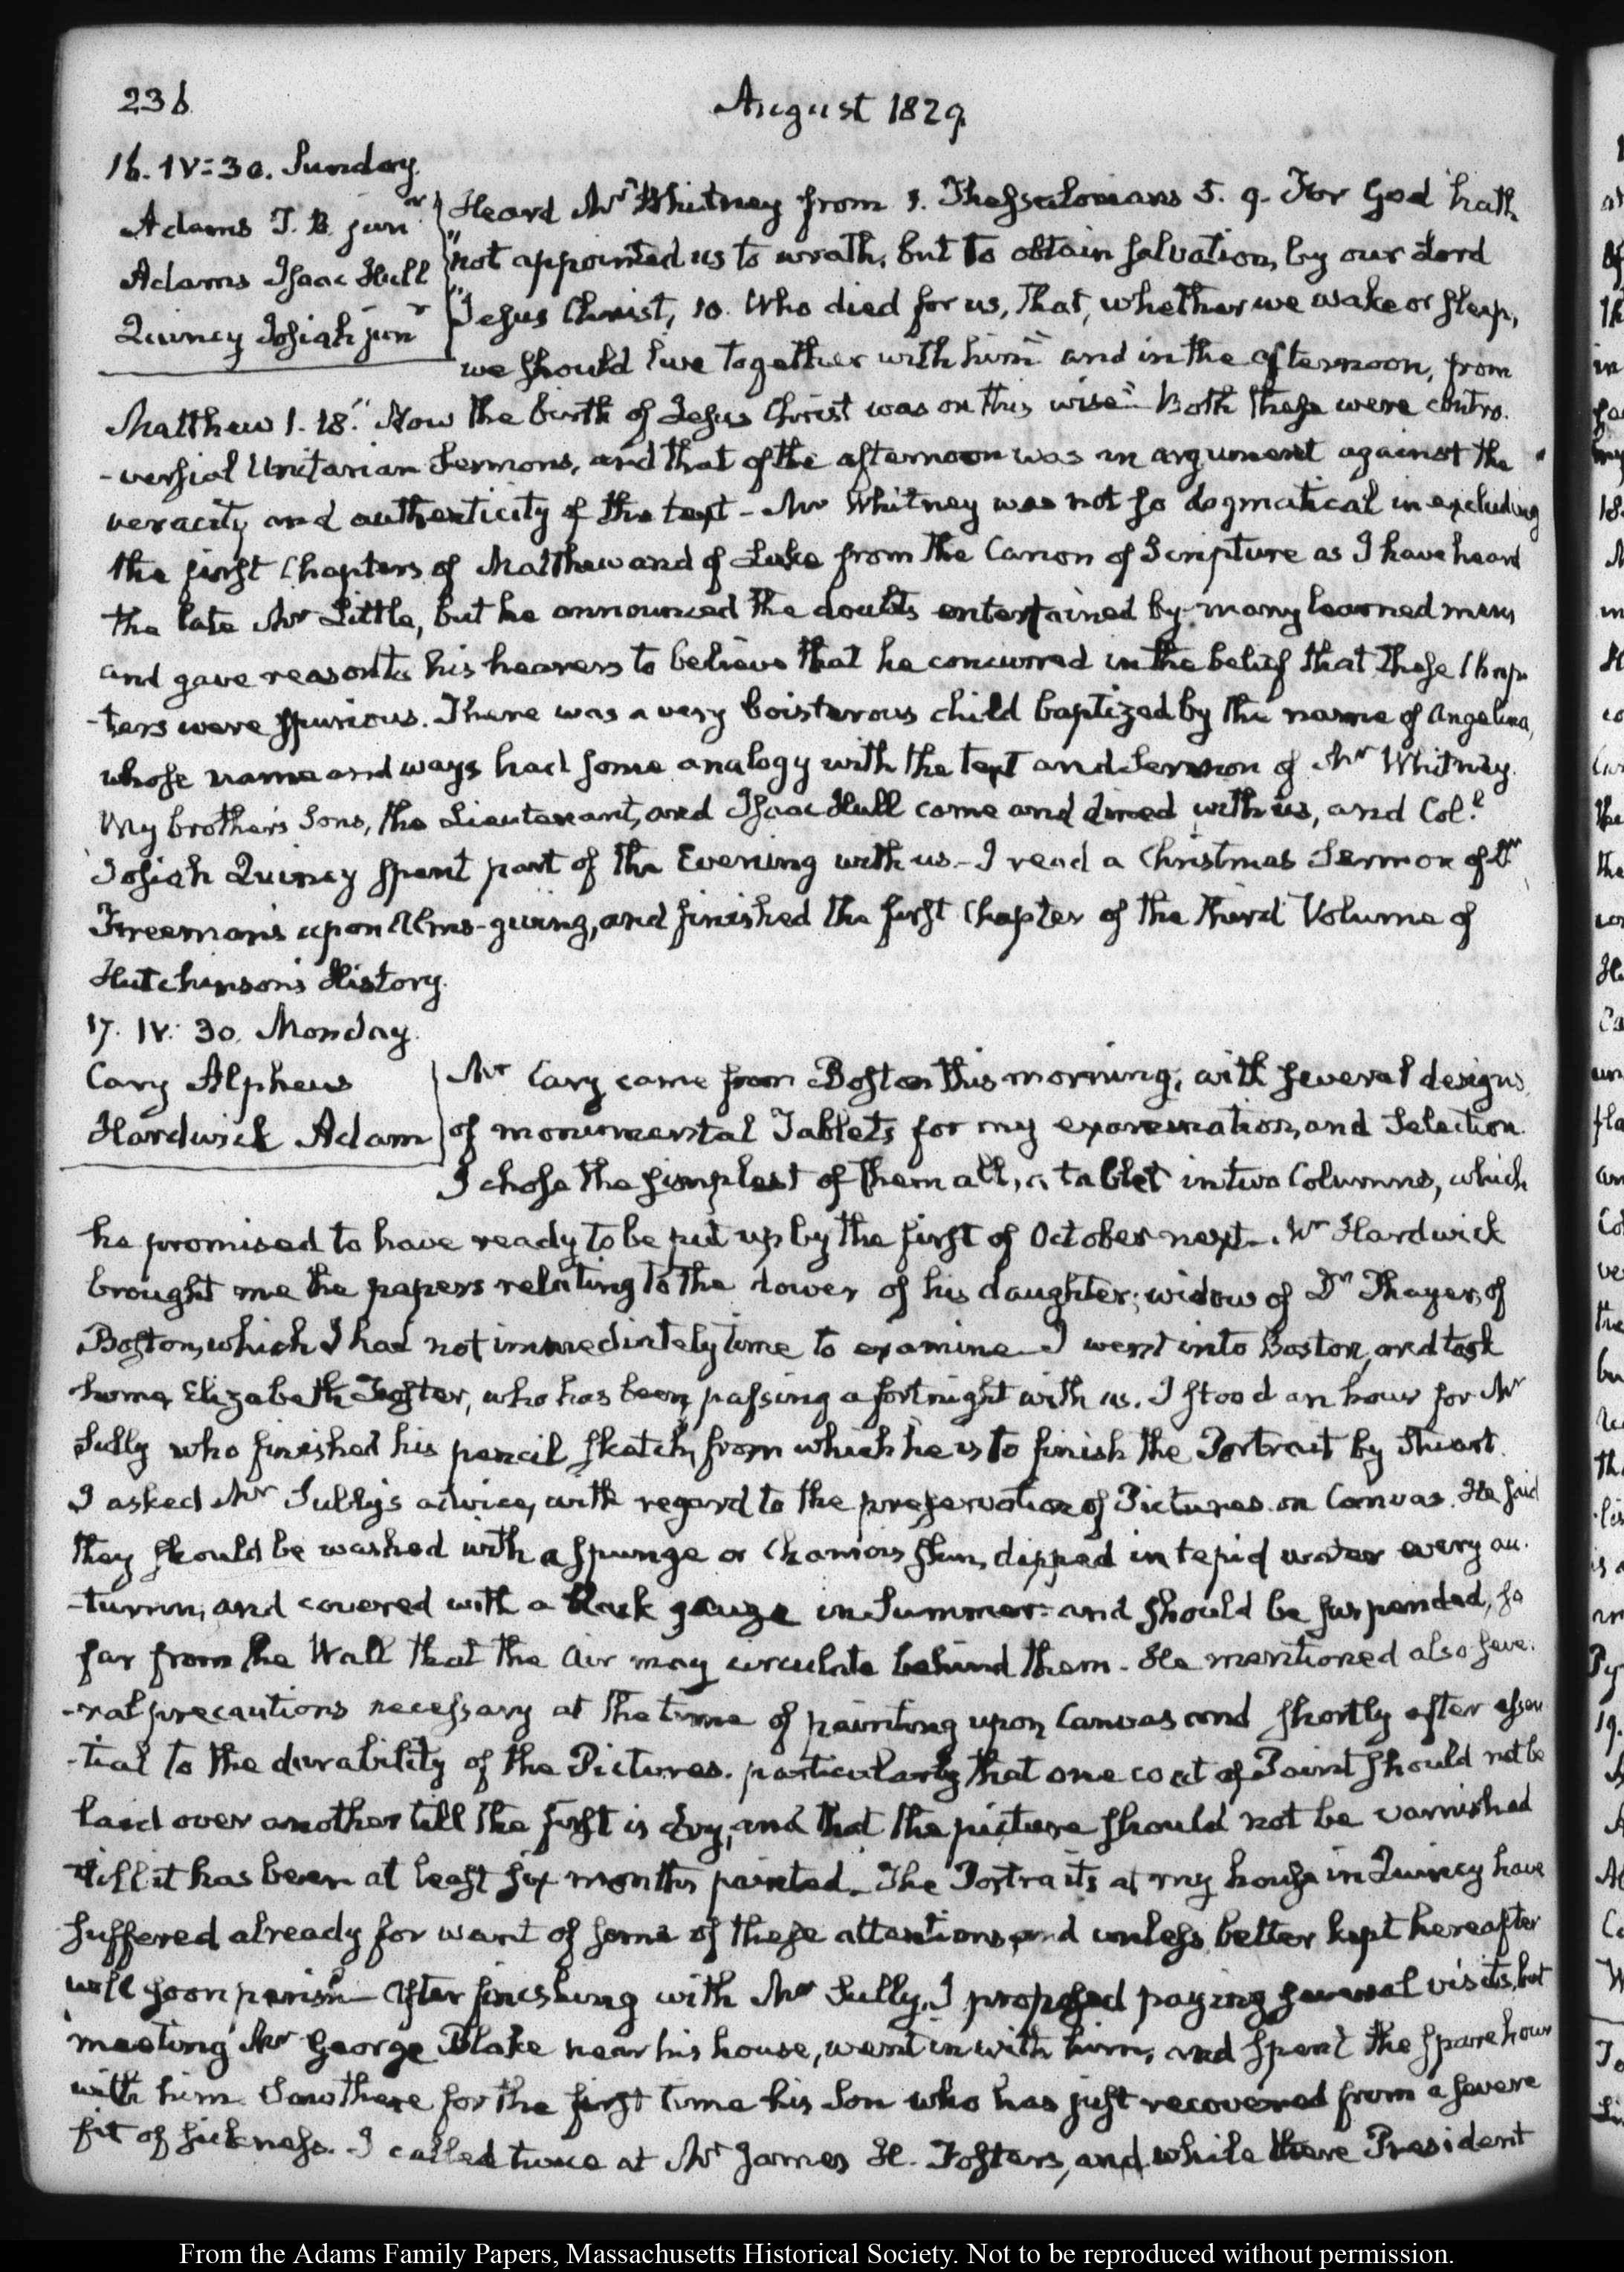 236
August 1829
16. IV:30. Sunday.
Adams T. B. junr
Adams Isaac Hull
Quincy Josiah junr
Heard Mr Whitney from 1. Thessalonians 5. 9. For God hath
"not appointed us to wrath, but to obtain salvation, by our Lord
"Jesus Christ, 10. Who died for us, that, whether we wake or sleep,
we should live together with him" and in the afternoon, from
Matthew 1. 18. "Now the birth of Jesus Christ was on this wise" Both these were contro-
-versial Unitarian Sermons, and that of the afternoon was an argument against the
veracity and authenticity of the text - Mr Whitney was not so dogmatical in excluding
the first Chapters of Matthew and of Luke from the Canon of Scripture as I have heard
the late Mr Little, but he announced the doubts entertained by many learned men,
and gave reason to his hearers to believe that he concurred in the belief that these Chap-
-ters were spurious. There was a very boisterous child baptized by the name of Angelina,
whose name and ways had some analogy with the text and Sermon of Mr Whitney.
My brother's Sons, the Lieutenant, and Isaac Hull came and dined with us, and Coll
Josiah Quincy spent part of the Evening with us - I read a Christmas Sermon of Dr
Freeman's upon Alms-giving, and finished the first Chapter of the third Volume of
Hutchinson's History.
17. IV:30. Monday.
Cary Alpheus
Hardwick Adam
Mr Cary came from Boston this morning, with several designs
of monumental Tablets for my examination, and Selection.
I chose the simplest of them all, a tablet in two Columns, which
he promised to have ready to be put up by the first of October next. Mr Hardwick
brought me the papers relating to the dower of his daughter, widow of Dr Thayer, of
Boston, which I had not immediately time to examine - I went into Boston, and took
home, Elizabeth Foster, who has been passing a fortnight with us. I stood an hour for Mr
Sully who finished his pencil sketch, from which he is to finish the Portrait by Stuart.
I asked Mr Sully's advice, with regard to the preservation of Pictures on Canvas. He said
they should be washed with a spunge or Chamois skin, dipped in tepid water every au-
-tumn, and covered with a black gauze in Summer: and should be suspended, so
far from the Wall that the Air may circulate behind them - He mentioned also seve-
-ral precautions necessary at the time of painting upon Canvas and shortly after essen
-tial to the durability of the Pictures. particularly that one coat of Paint should not be
laid over another till the first is dry, and that the picture should not be varnished
till it has been at least six months painted - The Portraits at my house in Quincy have
suffered already for want of some of these attentions and unless better kept hereafter
will soon perish - After finishing with Mr Sully, I proposed paying several visits, but
meeting Mr George Blake near his house, went in with him, and spent the spare hour
with him. Saw there for the first time his Son who has just recovered from a severe
fit of sickness. I called twice at Mr James H. Foster's, and while there President
From the Adams Family Papers, Massachusetts Historical Society. Not to be reproduced without permission.